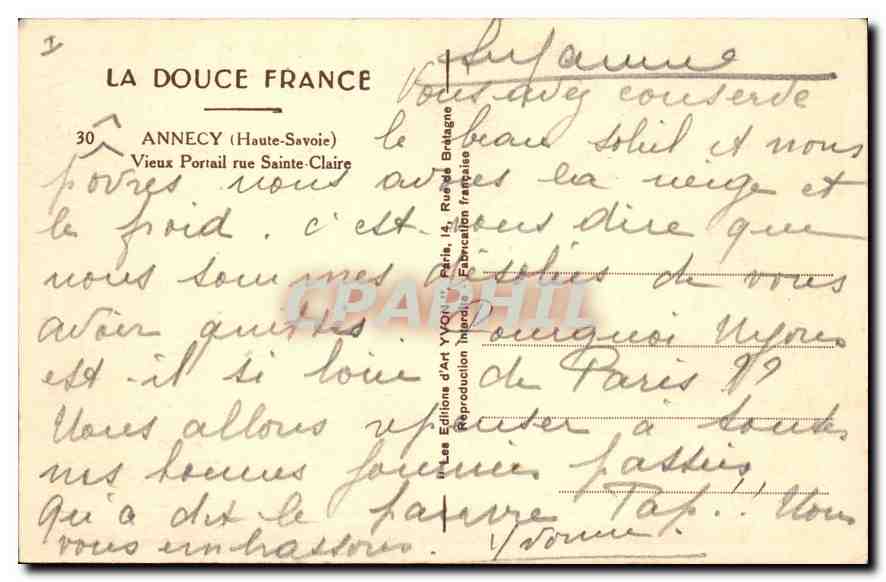 I
Suzanne
LA DOUCE FRANCE
Vous avez conservé
30 ANNECY (Haute-Savoie)
le beau soleil et nous
Vieux Portail rue Sainte-Claire
pôvres nous avons la neige et
le froid. C'est vous dire que
nous sommes désolés de vous
avoir quittés. Pourquoi Nyons
est-il si loin de Paris ??
Nous allons repenser à toutes
nos bonnes journées passées
Qu'a dit le pauvre Pap!! Nous
vous embrassons. Yvonne.
" Les Editions d'Art YVON ", Paris, 14, Rue de Bretagne
Reproduction Interdite - Fabrication française
CPAPHIL